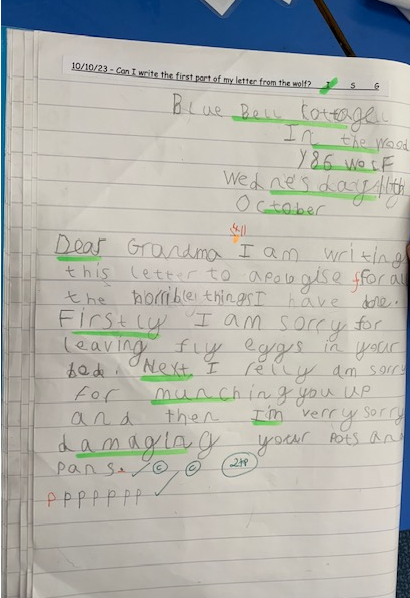 10/10/23 - Can I write the first part of my letter from the wolf? I S G
Blue Bell Cottage
In the wood
Y86 WOLF
Wednesday 11th
October
Dear Grandma I am writing
this letter to apologise for all
the horrible things I have done.
Firstly I am sorry for
leaving fly eggs in your
bed. Next I relly am sorry
for munching you up
and then I'm verry sorry
damaging your pots and
pans.
P P P P P P P